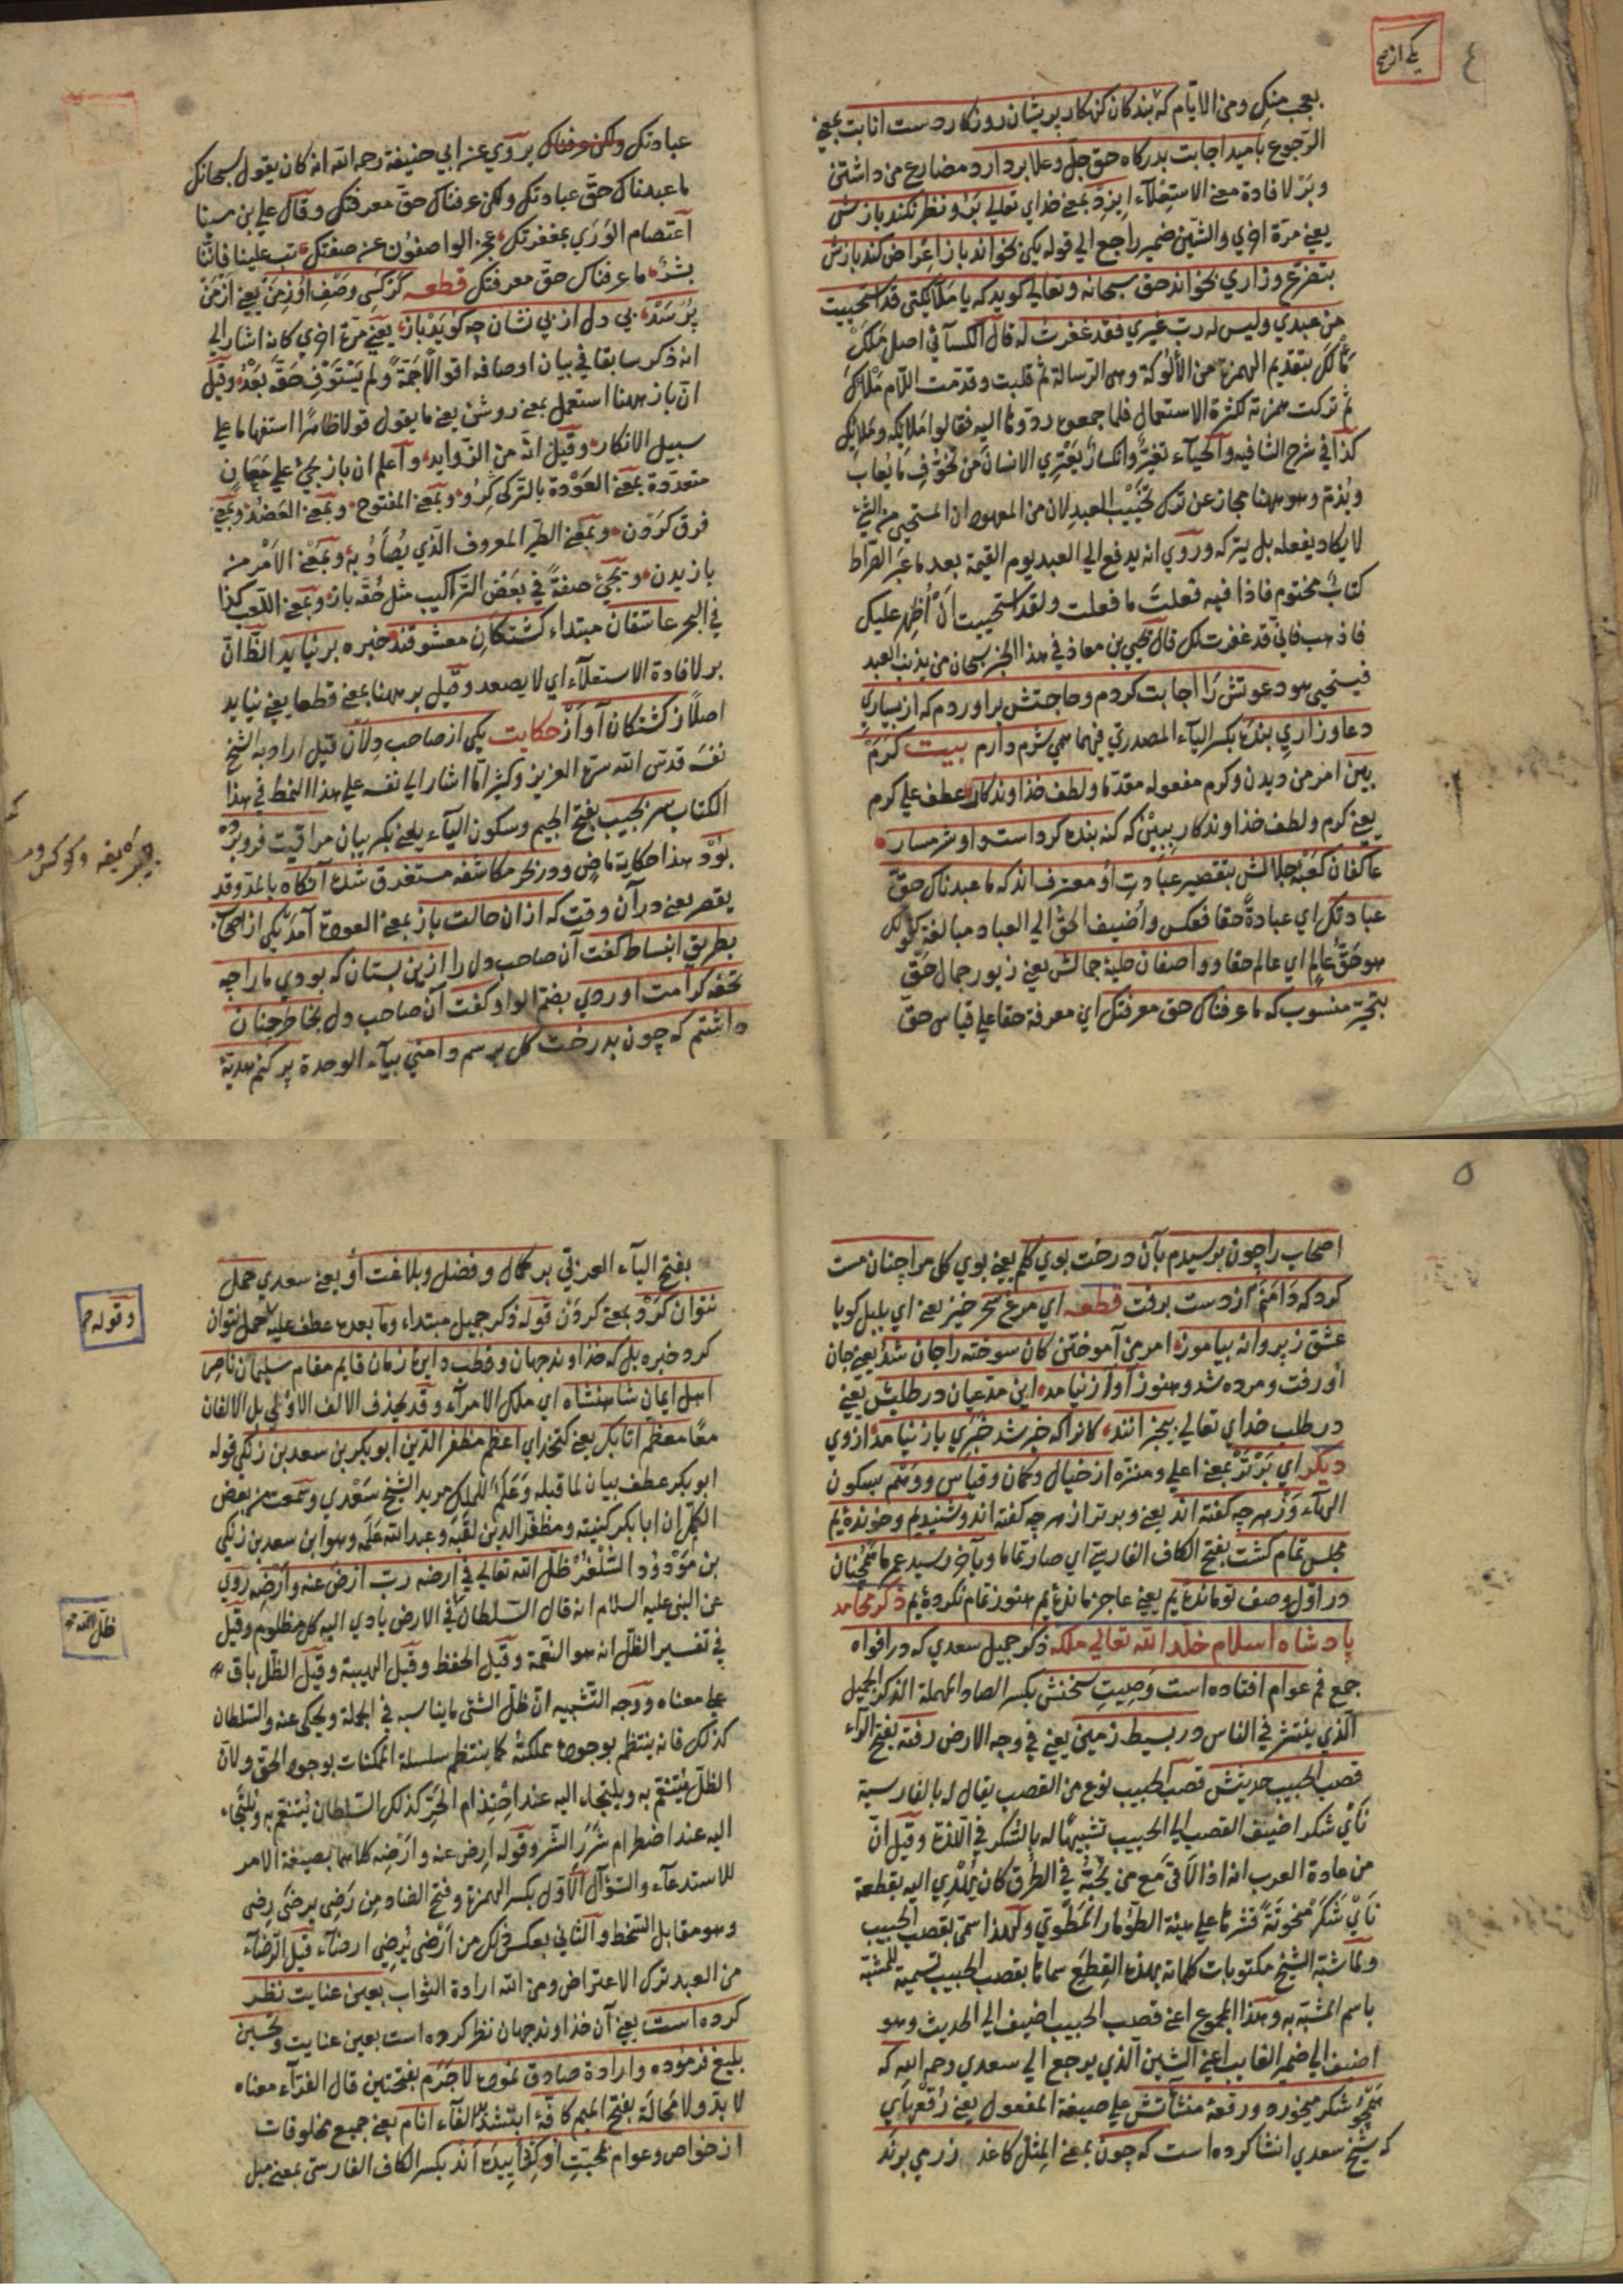 ٤
یکی از
بعجب منک ومن الایام که بندکان کنهکار پریشان روزکار دست انابت بمعنی
الرجوع بامید اجابت بدرکاه حق جل وعلا بردارد مضارع من داشتن
وبر لافادة معنی الاستعلاء ایزد بمعنی خدای تعالی برو نظر نکند بازش
یعنی مرة اخری والشین ضمیر راجع الی قوله یکی بخواند باز اعراض کند بازش
بتضرع وزاری بخواند حق سبحانه وتعالی کوید که یا ملائکتی قد استحییت
من عبدی ولیس له رب غیری فقد غفرت له قال الکسائی اصل ملک
مألک بتقدیم الهمزة من الألوکة وهی الرسالة ثم قلبت وقدمت اللام ملأک
ثم ترکت همزته لکثرة الاستعمال فلما جمعوه ردوها الیه فقالوا ملائکة وملائک
کذا فی شرح الشافیه والحیاء تغیر وانکسار یعتری الانسان من تخوف ما یعاب
ویذم وهو ههنا مجاز عن ترک تخییب العبد لان من المعهود ان المستحیی من الشئ
لا یکاد یفعله بل یترکه وروی انه یدفع الی العبد یوم القیمة بعد ما عبر الصراط
کتاب مختوم فاذا فیه فعلت ما فعلت ولقد استحییت ان اظهر علیک
فاذهب فانی قد غفرت لک قال یحیی بن معاذ فی هذا الخبر سبحان من یذنب العبد
فیستحیی هو دعوتش را اجابت کردم وحاجتش براوردم که از بسیاری
دعا وزاری بنده بکسر الیاء المصدری فیهما همی شرم دارم بیت کرم
بین امر من دیدن وکرم مفعوله مقدما ولطف خداوندکار عطف علی کرم
یعنی کرم ولطف خداوندکار ببین که کنه بنده کرد است واو شرمسار
عاکفان کعبه جلالش بتقصیر عبادت او معترف اند که ما عبدناک حق
عبادتک ای عبادة حقا فعکس واضیف الحق الی العباد مبالغة کقولک
هو حق عالم ای عالم حقا وواصفان حلیه جمالش یعنی زیور جمال حق
بتحیر منسوب که ما عرفناک حق معرفتک ای معرفة حقا علی قیاس حق
عبادتک ولکن عرفناک یروی عن ابی حنیفة رحمه الله انه کان یقول سبحانک
ما عبدناک حق عبادتک ولکن عرفناک حق معرفتک وقال علی بن سینا
اعتصام الوری بمغفرتک عجز الواصفون عن صفتک تب علینا فاننا
بشر ما عرفناک حق معرفتک قطعه کر کسی وصف او ز من یعنی از من
پرسد بی دل از بی نشان چه کوید باز یعنی مرة اخری کانه اشار الی
انه ذکر سابقا فی بیان اوصافه اقوالا جمة ولم یستوف حقه بعد وقیل
ان باز ههنا استعمل بمعنی روشن یعنی ما یقول قولا ظاهرا استفهاما علی
سبیل الانکار وقیل انه من الزواید واعلم ان باز یجئ علی معان
متعددة بمعنی العودة بالترکی کرو وبمعنی المفتوح وبمعنی العضد وبمعنی
فرق کردن وبمعنی الطیر المعروف الذی یصاد به وبمعنی الامر من
بازیدن ویجئ صفة فی بعض التراکیب مثل حقه باز وبمعنی اللعب کذا
فی البحر عاشقان مبتداء کشتکان معشوقند خبره بر نیاید الظ ان
بر لافادة الاستعلاء ای لا یصعد وقیل بر ههنا بمعنی قطعا یعنی نیاید
اصلا ز کشتکان آواز حکایت یکی از صاحب دلان قیل اراد به الشیخ
نفسه قدس الله سره العزیز وکثیرا ما اشار الی نفسه علی هذا النمط فی هذا
الکتاب سر بجیب بفتح الجیم وسکون الیاء یعنی بکریبان مراقبت فرو برده
بود هذا حکایة ماض ودر بحر مکاشفه مستغرق شده آنکاه بالمد وقد
یقصر یعنی در آن وقت که از ان حالت باز بمعنی العودة آمد یکی از اصحاب
بطریق انبساط کفت آن صاحب دل را ازین بستان که بودی ما را چه
تحفه کرامت اوردی بضم الواو کفت آن صاحب دل بخاطر چنان
داشتم که چون بدرخت کل برسم دامنی بیاء الوحدة پر کنم هدیه
٥
اصحاب را چون برسیدم بآن درخت بوی کلم یعنی بوی کل مرا چنان مست
کرد که دامنم از دست برفت قطعه ای مرغ سحر خیز یعنی ای بلبل کویا
عشق ز پروانه بیاموز امر من آموختن کان سوخته را جان شد یعنی جان
او رفت ومرده شد وهنوز آواز نیامد این مدعیان در طلبش یعنی
در طلب خدای تعالی بیخبرانند کانرا که خبر شد خبری باز نیامد ازوی
دیکر ای برتر بمعنی اعلی ومنزه از خیال وکمان وقیاس ووهم بسکون
الهاء وز هر چه کفته اند یعنی وبرتر از هر چه کفته اند وشنیدیم وخوندهٔ یم
مجلس تمام کشت بفتح الکاف الفارسیة ای صار تماما وبآخر رسید عمر ما همچنان
در اول وصف تو ماندهٔ یم یعنی عاجز ماندهٔ یم هنوز تمام نکردهٔ یم ذکر محامد
پادشاه اسلام خلد الله تعالی ملکه ذکر جمیل سعدی که در افواه
جمع فم عوام افتاده است وصیت سخنش بکسر الصاد المهملة الذکر الجمیل
الذی ینتشر فی الناس در بسیط زمین یعنی فی وجه الارض رفته بفتح الراء
قصب الحبیب حدیثش قصب الحبیب نوع من القصب یقال له بالفارسیة
نای شکر اضیف القصب الی الحبیب تشبیها له بالشکر فی اللذة وقیل ان
من عادة العرب انه اذا لاقی مع من یحبه فی الطرق کان یهدی الیه بقطعة
نای شکر منحوتة قشرها علی هیئة الطومار المطوی ولهذا سمی بقصب الحبیب
ولما شبه الشیخ مکتوبات کلماته بهذه القطع سماها بقصب الحبیب تسمیة للمشبه
باسم المشبه به وهذا المجموع اعنی قصب الحبیب اضیف الی الحدیث وهو
اضیف الی ضمیر الغایب اعنی الشین الذی یرجع الی سعدی رحمه الله که
همچو شکر میخورد ورقعهٔ منشآتش علی صیغة المفعول یعنی رقعهای
که شیخ سعدی انشا کرده است که چون بمعنی المثل کاغذ زر می برند
بفتح الباء العربی بر کمال وفضل وبلاغت او یعنی سعدی حمل
نتوان کرد بمعنی کردن قوله ذکر جمیل مبتداء وما بعده عطف علیه حمل نتوان
کرد خبره بل که خداوند جهان وقطب دایرهٔ زمان قایم مقام سلیمان ناصر
اهل ایمان شاهنشاه ای ملک الامراء وقد یحذف الالف الاولی بل الالفان
معا معظم اتابک یعنی کتخدای اعظم مظفر الدین ابو بکر بن سعد بن زنکی قوله
ابو بکر عطف بیان لما قبله وعلم للملک مرید الشیخ سعدی وسمعت من بعض
الکمل ان ابا بکر کنیته ومظفر الدین لقبه وعبد الله علمه وهو ابن سعد بن زنکی
بن مودود السلغر ظل الله تعالی فی ارضه رب ارض عنه وارضه روی
عن النبی علیه السلام انه قال السلطان ظل الله فی الارض یاوی الیه کل مظلوم وقیل
فی تفسیر الظل انه هو النعمة وقیل الحفظ وقیل الهیبة وقیل الظل باق
علی معناه ووجه التشبیه ان ظل الشئ ما یناسبه فی الجملة ویحکی عنه والسلطان
کذلک فانه ینتظم بوجوده مملکته کما ینتظم سلسلة الممکنات بوجود الحق ولان
الظل یتنعم به ویلتجاء الیه عند احتذام الحر کذلک السلطان یتنعم به ویلتجاء
الیه عند اضطرام شرر الشر وقوله ارض عنه وارضه کلاهما بصیغة الامر
للاستدعاء والسؤال الاول بکسر الهمزة وفتح الضاد من رضی یرضی رضی
وهو مقابل السخط والثانی بعکس ذلک من ارضی یرضی ارضاء قیل الرضاء
من العبد ترک الاعتراض ومن الله ارادة الثواب بعین عنایت نظر
کرده است یعنی آن خداوند جهان نظر کرده است بعین عنایت وتحسین
بلیغ فرموده وارادهٔ صادق نموده لا جرم بفتحتین قال الفراء معناه
لا بد ولا محالة بفتح المیم کافهٔ بتشدید الفاء انام یعنی جمیع مخلوقات
از خواص وعوام بمحبت او کراییده اند بکسر الکاف الفارسی بمعنی میل
وقوله
ظل الله